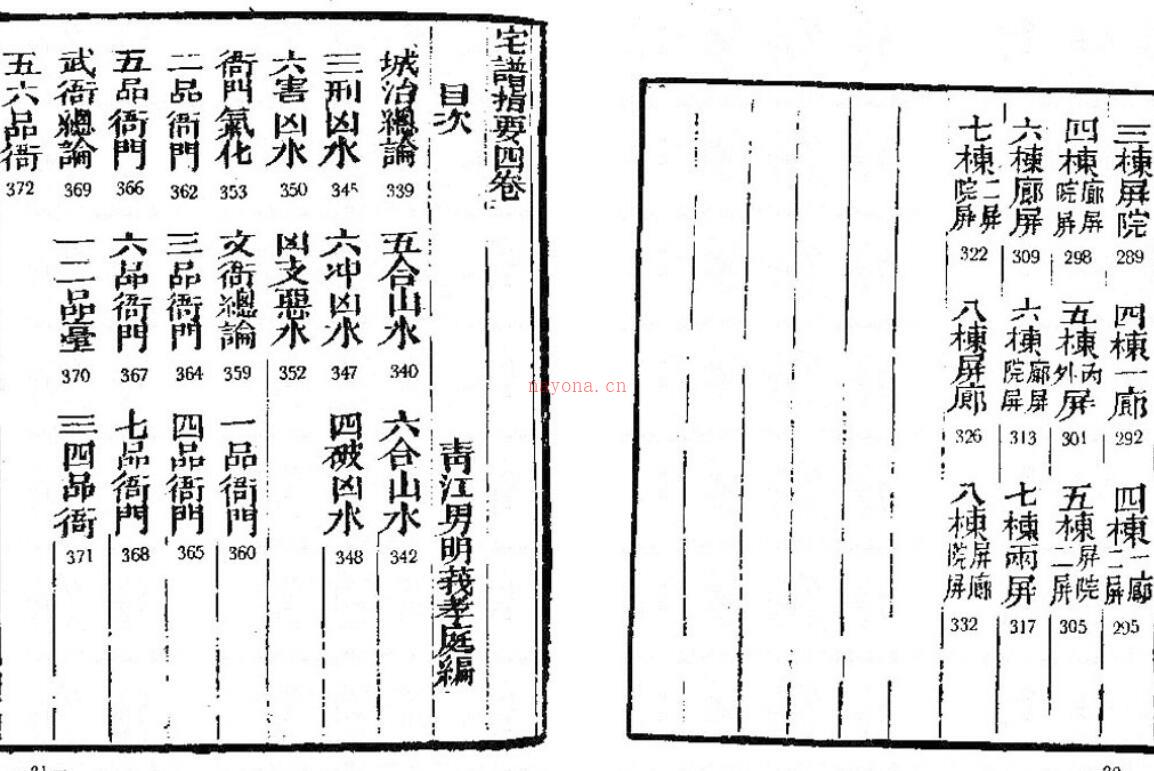 三棟屏院 289 四棟一廊 292 四棟一廊二屏 295
四棟廊屏院屏 298 五棟丙外屏 301 五棟屏院二屏 305
六棟廊屏 309 六棟廊屏院屏 313 七棟兩屏 317
七棟二屏院屏 322 八棟屏廊 326 八棟屏廊院屏 332
宅譜指要四卷
目次 青江男明莪孝庭編
城治總論 339 五合山水 340 六合山水 342
三刑凶水 345 六冲凶水 347 四破凶水 348
六害凶水 350 凶支惡水 352
衙門氣化 353 文衙總論 359 一品衙門 360
二品衙門 362 三品衙門 364 四品衙門 365
五品衙門 366 六品衙門 367 七品衙門 368
武衙總論 369 一二品臺 370 三四品衙 371
五六品衙 372
nayona.cn